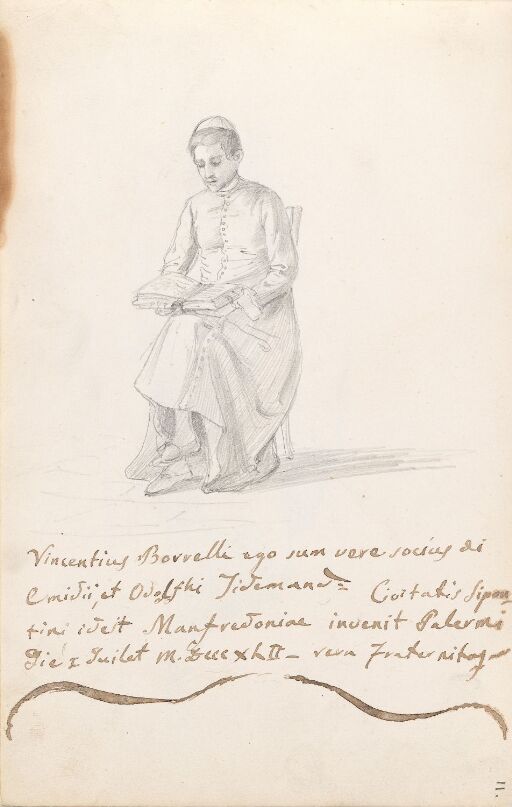 Vincentius Borrelli ego sum vere socius di
Emidii, et Odolfhi Tidemand= Civitatis Sipon=
tini idest Manfredoniae invenit Palermi
Die I Juilet M.Dccc XLII_ vera Fraternitas
11.